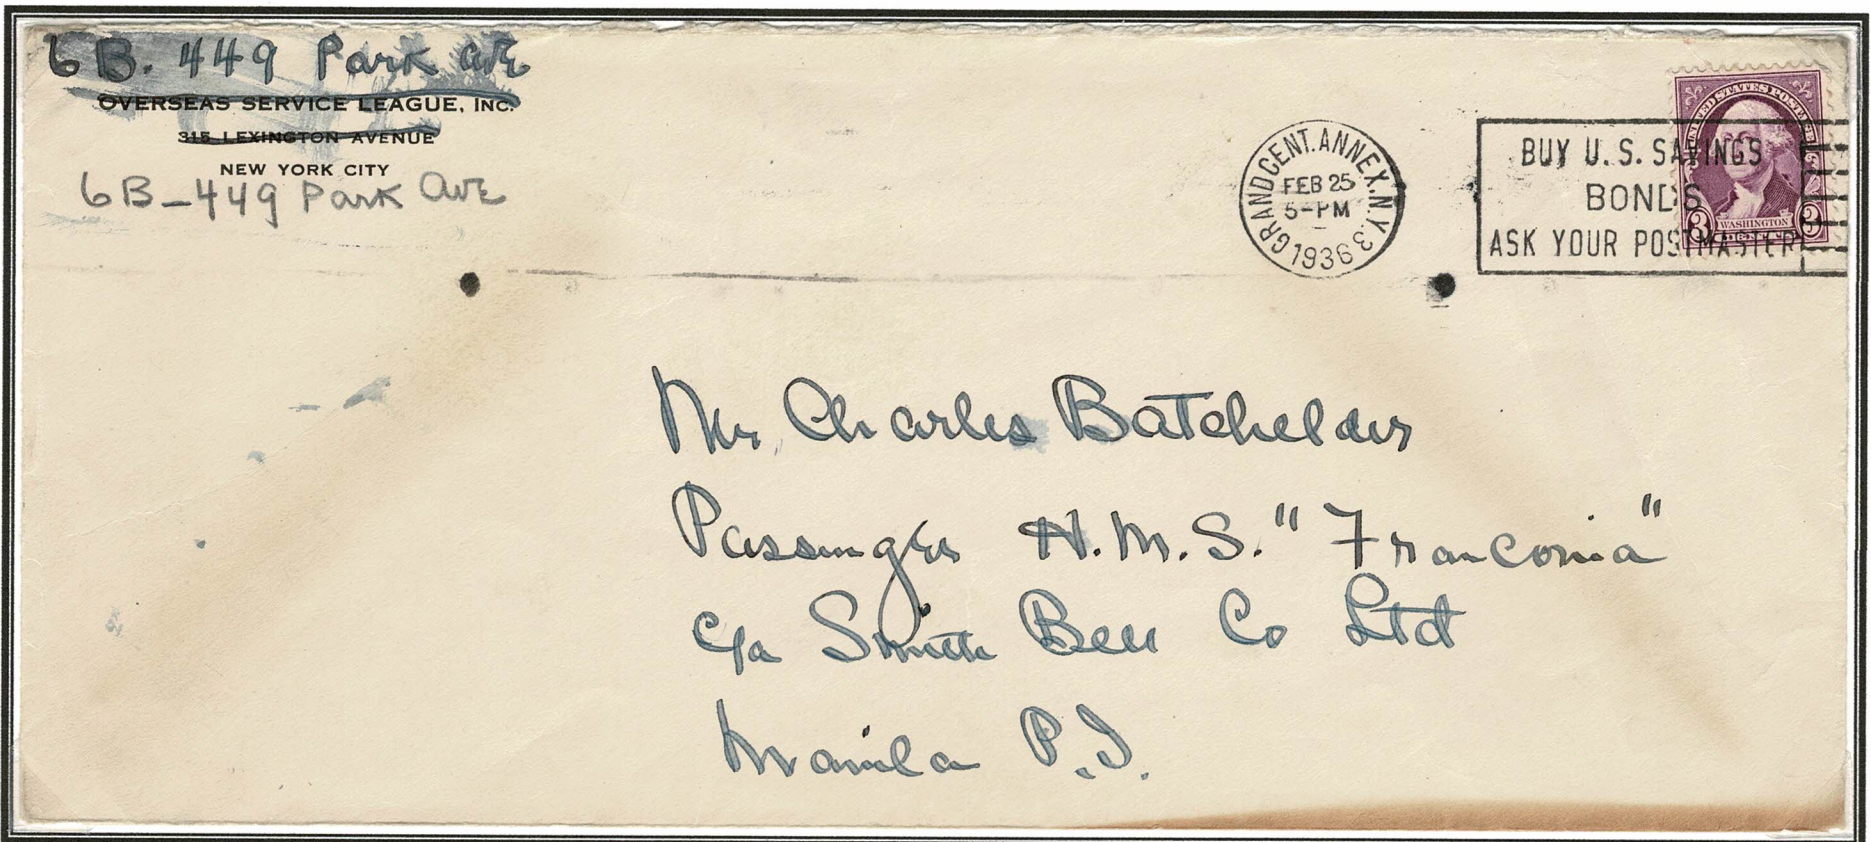 6 B. 449 Park Ave
OVERSEAS SERVICE LEAGUE, INC.
315 LEXINGTON AVENUE
NEW YORK CITY
6B-449 Park Ave
GRAND CENT. ANNEX. N.Y. 3
FEB 25
5-PM
1936
BUY U.S. SAVINGS
BONDS
ASK YOUR POSTMASTER
UNITED STATES POSTAGE
WASHINGTON
3 3
Mr Charles Batchelder
Passenger H.M.S. "Franconia"
c/o Smith Bell Co Ltd
Manila P.I.